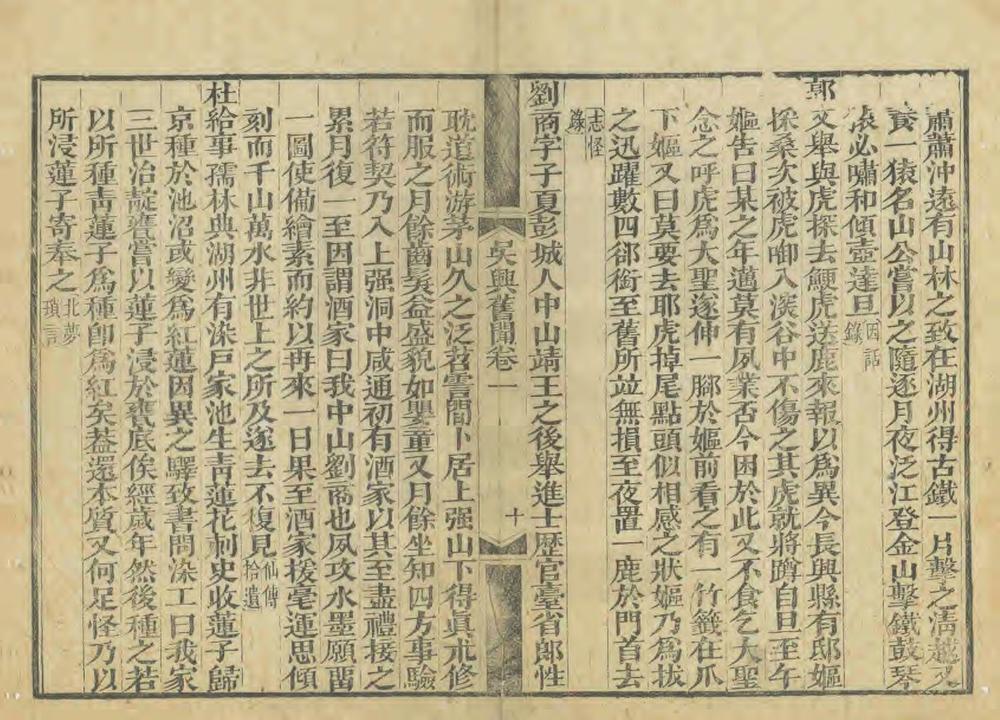 肅蕭沖遠有山林之致在湖州得古鐵一片擊之淸越又
養一猿名山公嘗以之隨逐月夜泛江登金山擊鐵鼓琴
猿必嘯和傾壺達旦因話錄
郭文舉與虎探去鯁虎送鹿來報以爲異今長興縣有邸嫗
採桑次被虎啣入深谷中不傷之其虎就將蹲自旦至午
嫗告曰某之年邁莫有夙業否今困於此又不食乞大聖
念之呼虎爲大聖遂伸一腳於嫗前看之有一竹籤在爪
下嫗又曰莫要去耶虎掉尾點頭似相感之狀嫗乃爲拔
之迅躍數四郤銜至舊所竝無損至夜置一鹿於門首去
志怪錄
劉商字子夏彭城人中山靖王之後舉進士歴官臺省郎性
吳興舊聞卷一 十
耽道術游茅山久之泛苕霅閒卜居上强山下得眞朮修
而服之月餘齒髮益盛貌如嬰童又月餘坐知四方事驗
若符契乃入上强洞中咸通初有酒家以其至盡禮接之
累月復一至因謂酒家曰我中山劉商也夙攻水墨願畱
一圖使備繪素而約以再來一日果至酒家援毫運思傾
刻而千山萬水非世上之所及遂去不復見仙傳拾遺
杜給事孺林典湖州有染戸家池生靑蓮花刺史收蓮子歸
京種於池沼或變爲紅蓮因異之驛致書問染工曰我家
三世治靛甕嘗以蓮子浸於甕底俟經歲年然後種之若
以所種靑蓮子爲種卽爲紅矣葢還本質又何足怪乃以
所浸蓮子寄奉之北夢瑣言